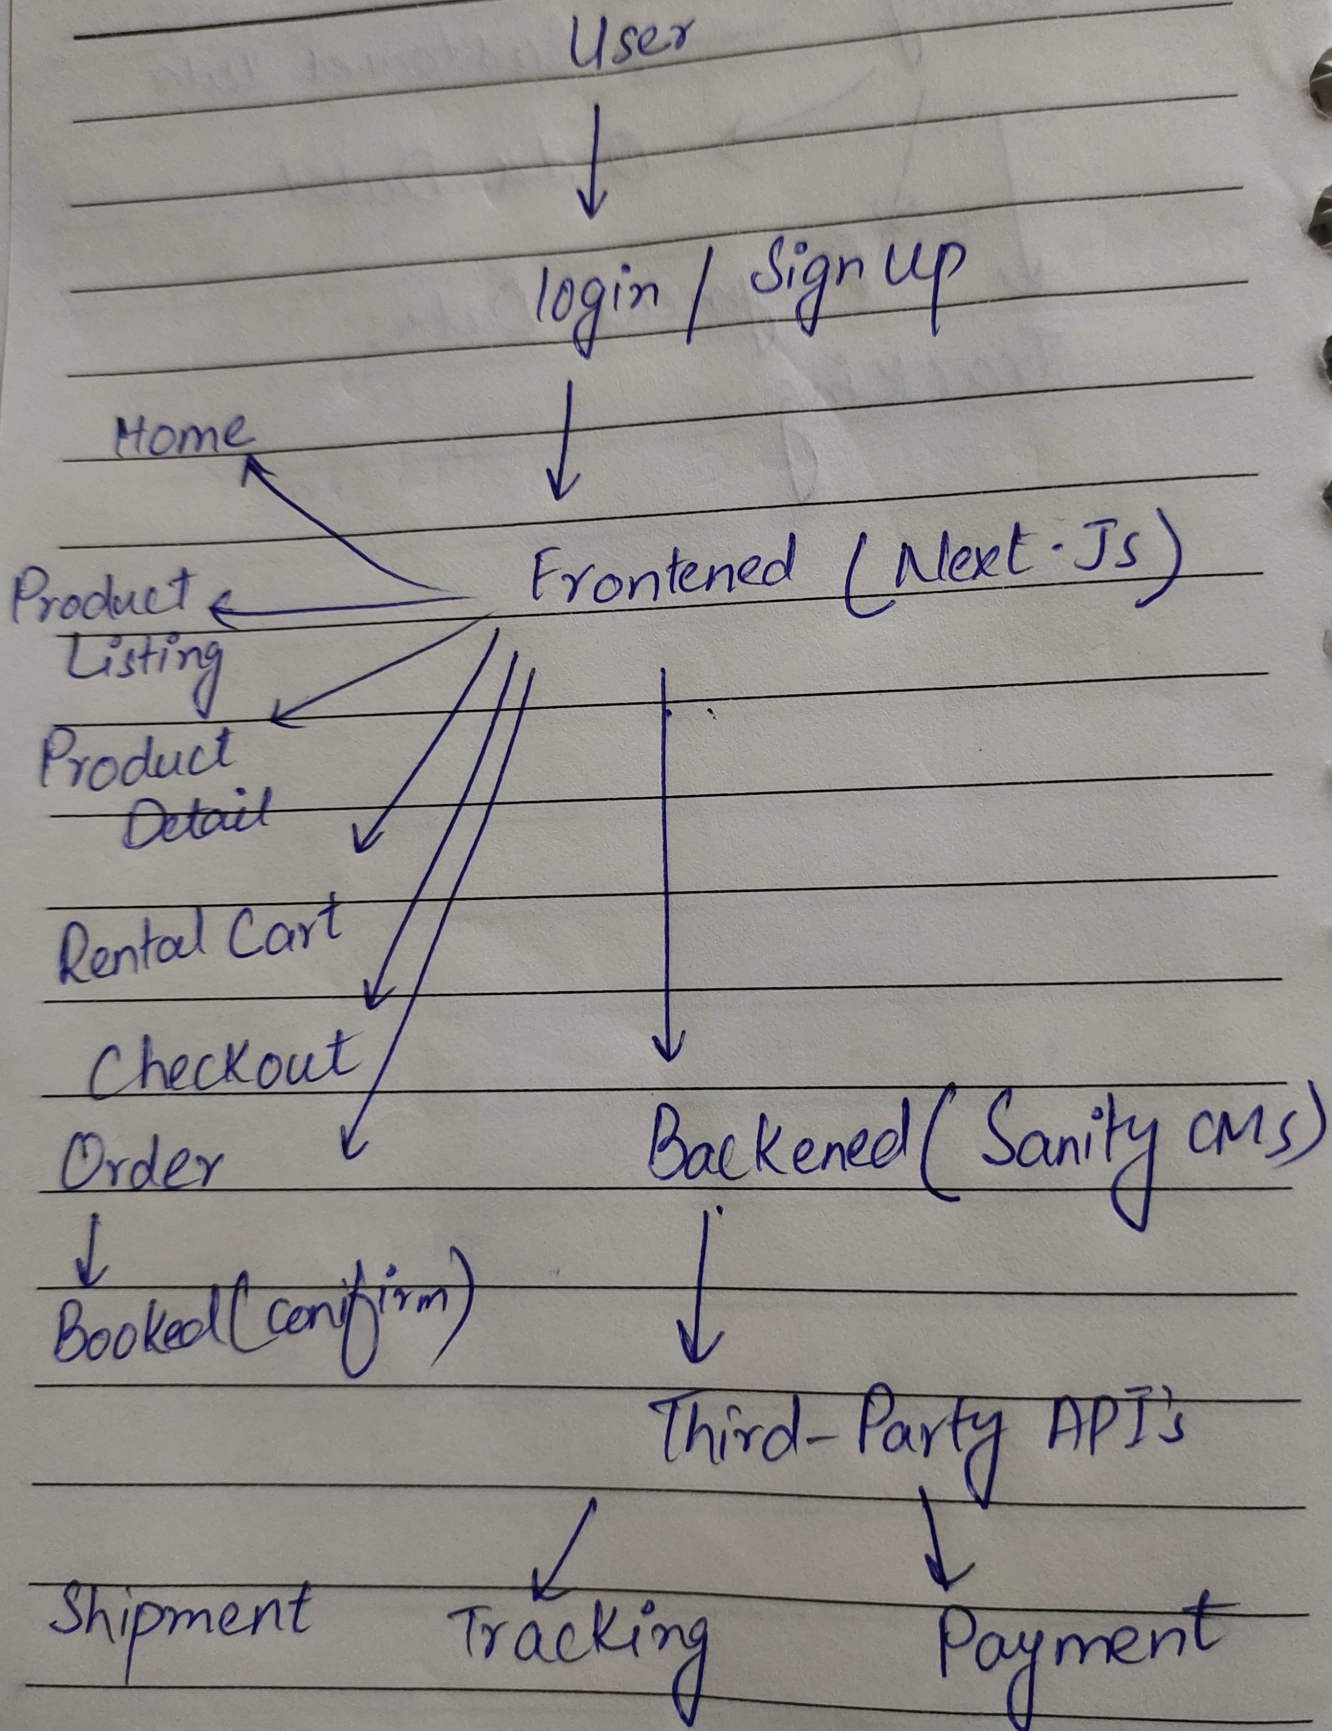 User
login / Sign up
Home
Frontened (Next.Js)
Product
Listing
Product
Detail
Rental Cart
Checkout
Backened (Sanity CMS)
Order
Booked (conifirm)
Third-Party API's
Shipment Tracking Payment